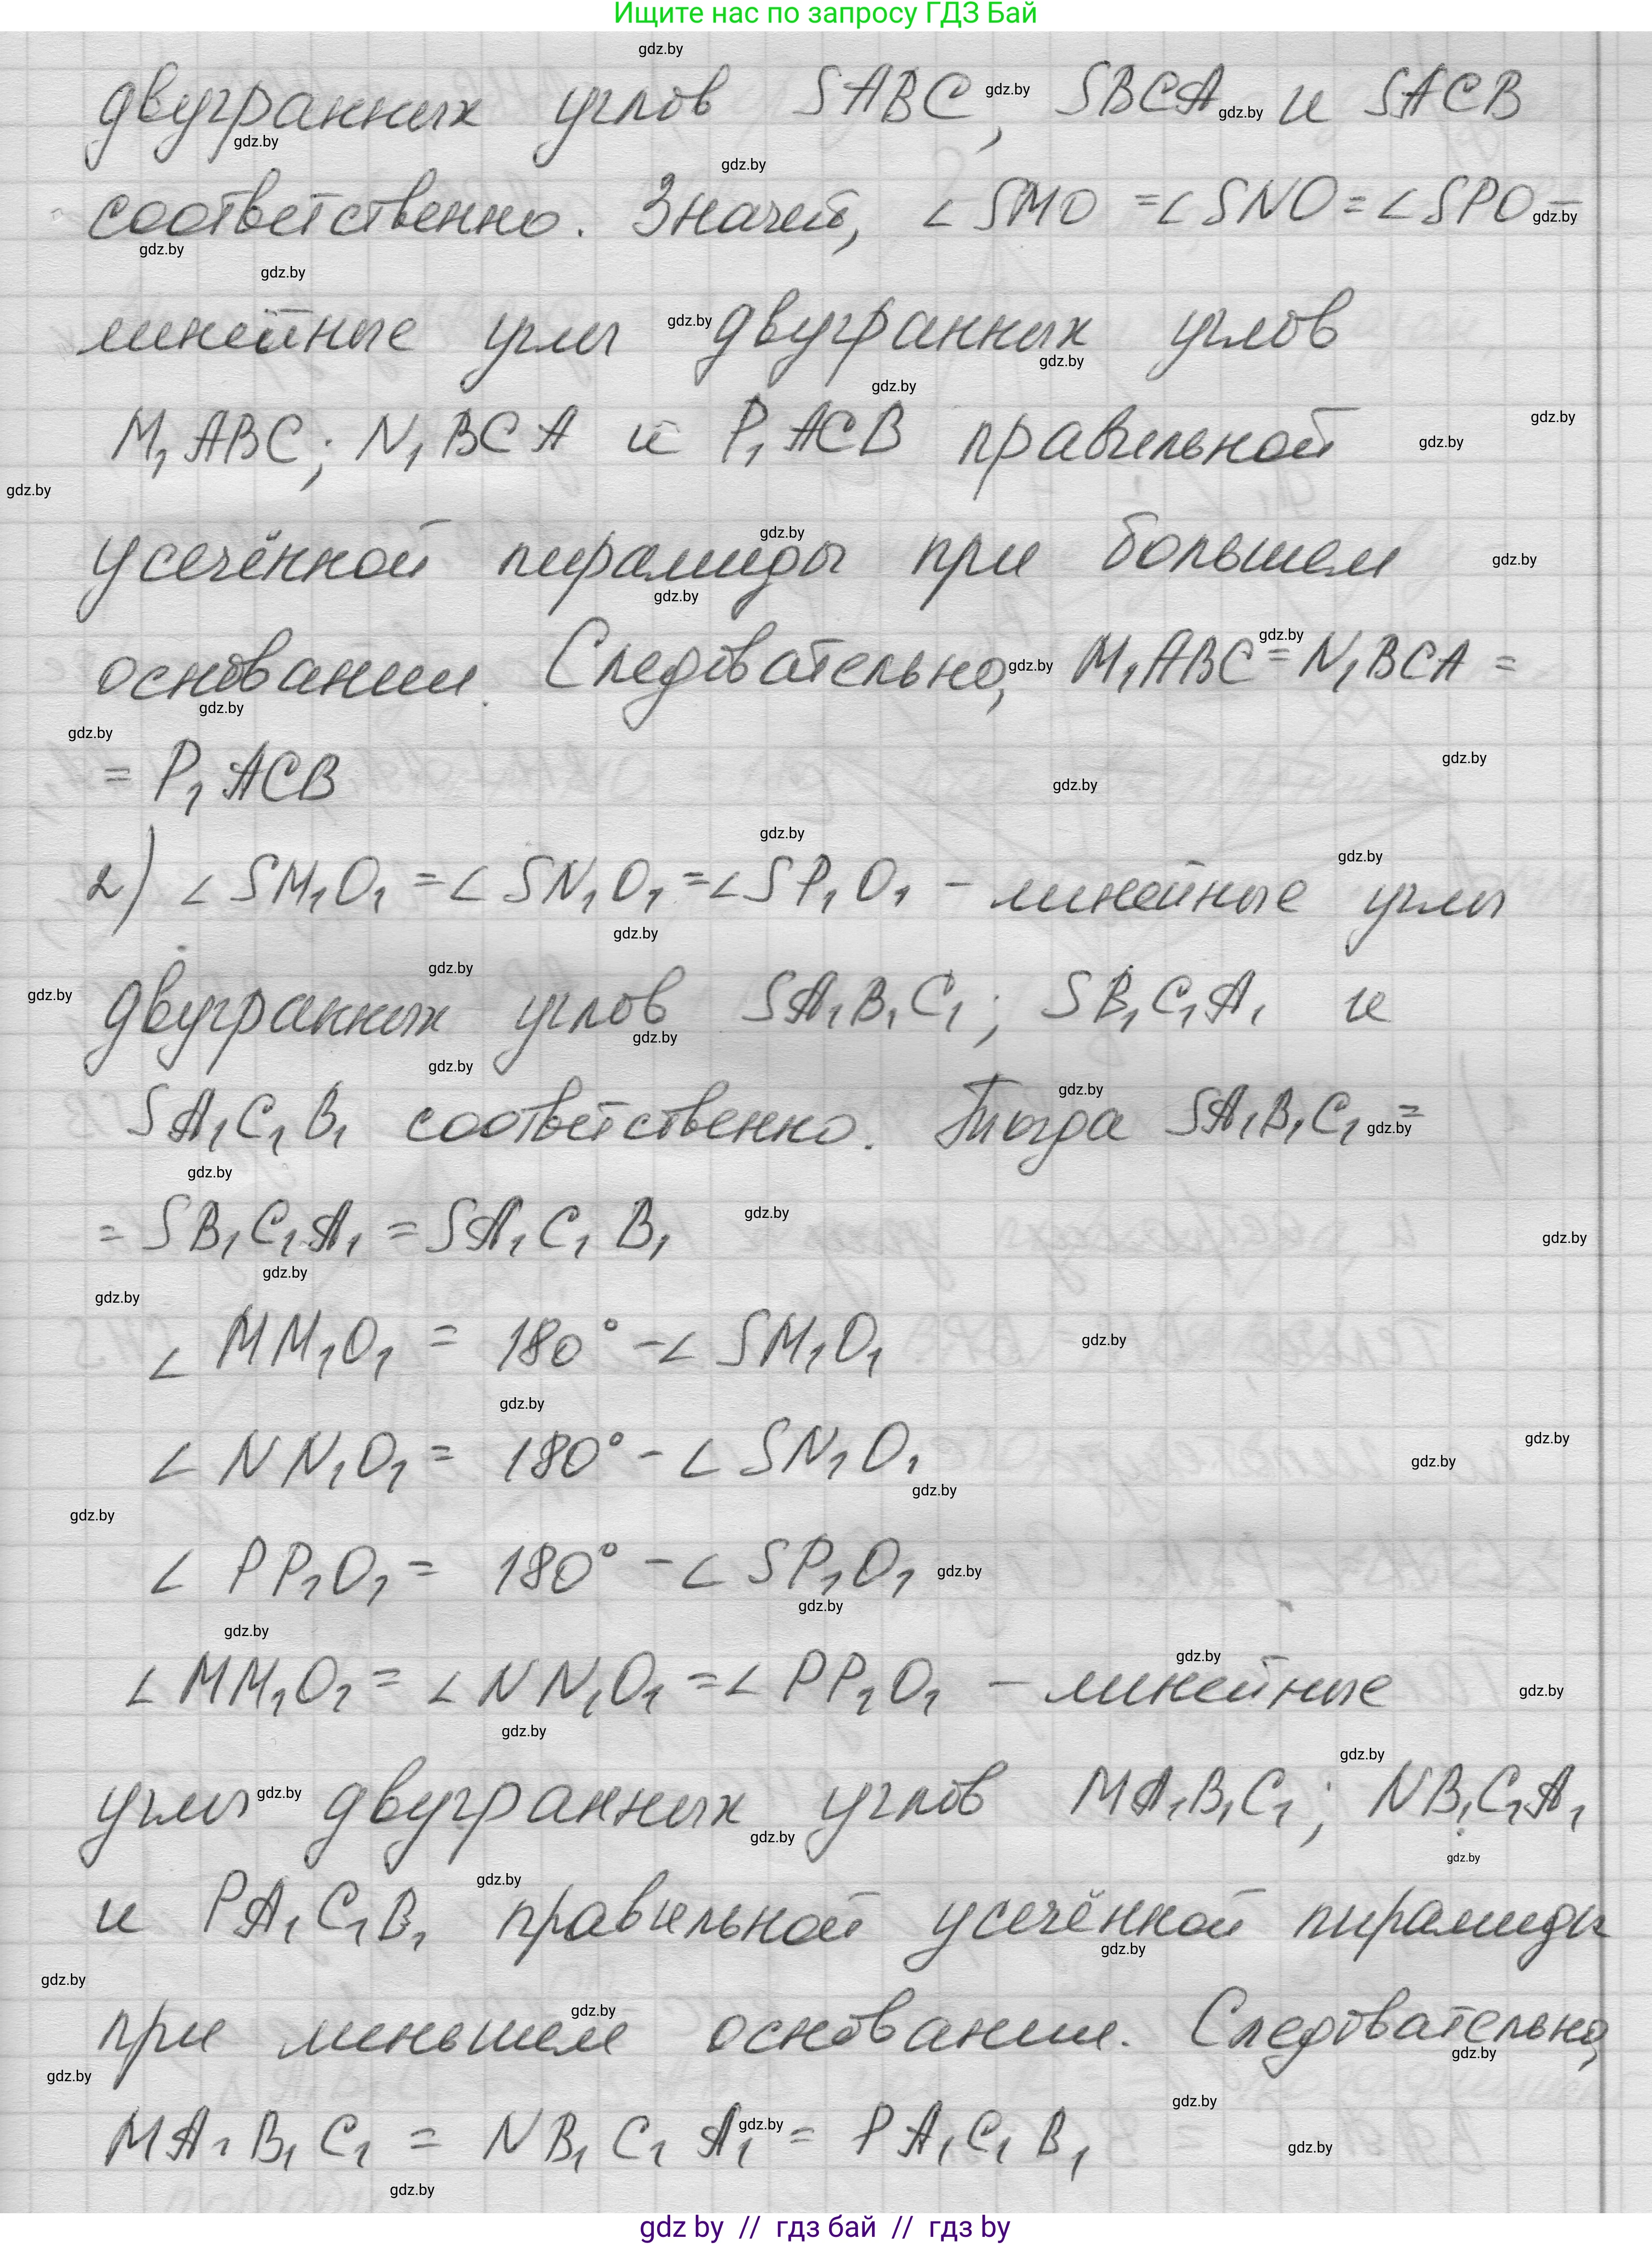 Ищите нас по запросу ГДЗ Бай
двугранных углов SABC, SBCA и SACB
соответственно. Значит, ∠SMO = ∠SNO = ∠SPO –
линейные углы двугранных углов
M₁ABC; N₁BCA и P₁ACB правильной
усечённой пирамиды при большем
основании. Следовательно, M₁ABC = N₁BCA =
= P₁ACB
2) ∠SM₁O₁ = ∠SN₁O₁ = ∠SP₁O₁ – линейные углы
двугранных углов SA₁B₁C₁; SB₁C₁A₁ и
SA₁C₁B₁ соответственно. Тогда SA₁B₁C₁ =
= SB₁C₁A₁ = SA₁C₁B₁
∠MM₁O₁ = 180° – ∠SM₁O₁
∠NN₁O₁ = 180° – ∠SN₁O₁
∠PP₁O₁ = 180° – ∠SP₁O₁
∠MM₁O₁ = ∠NN₁O₁ = ∠PP₁O₁ – линейные
углы двугранных углов MA₁B₁C₁; NB₁C₁A₁
и PA₁C₁B₁ правильной усечённой пирамиды
при меньшем основании. Следовательно,
MA₁B₁C₁ = NB₁C₁A₁ = PA₁C₁B₁
gdz by // гдз бай // гдз by